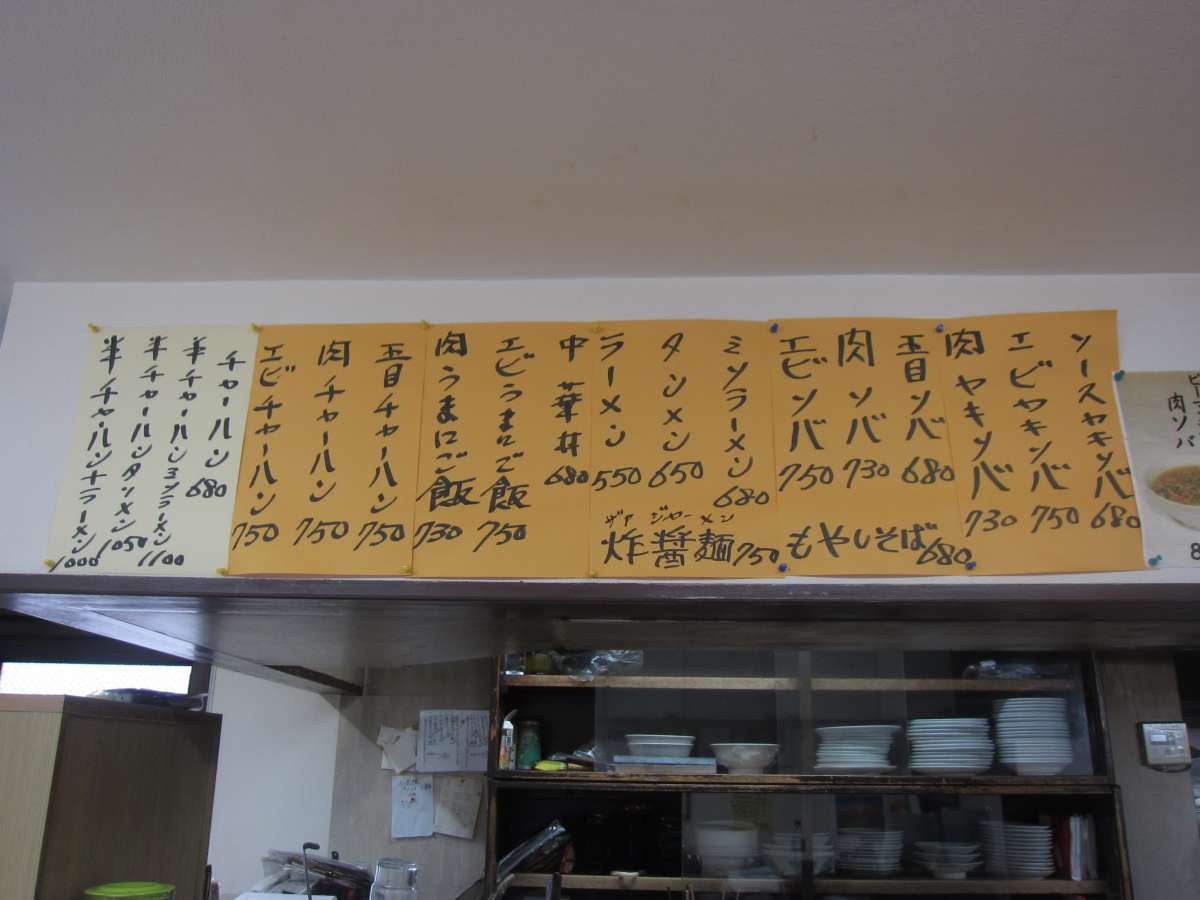 ソースヤキソバ 680
エビヤキソバ 750
肉ヤキソバ 730
五目ソバ 680
肉ソバ 730
エビソバ 750
もやしそば 680
ミソラーメン 680
タンメン 650
ラーメン 550
ザァ ジャー メン
炸醤麺 750
中華丼 680
エビうまにご飯 750
肉うまにご飯 730
五目チャーハン 750
肉チャーハン 750
エビチャーハン 750
チャーハン 680
半チャーハンミソラーメン 1100
半チャーハンタンメン 1050
半チャーハン+ラーメン 1000
肉ソバ
8